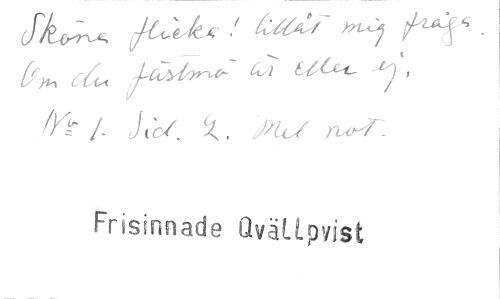 Sköna flicka! tillåt mig fråga.
Om du fästmö är eller ej.
No 1. Sid. 2. Mel not.
Frisinnade Qvällpvist